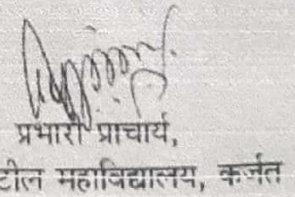 प्रभारी प्राचार्य,
टील महाविद्यालय, कर्जत